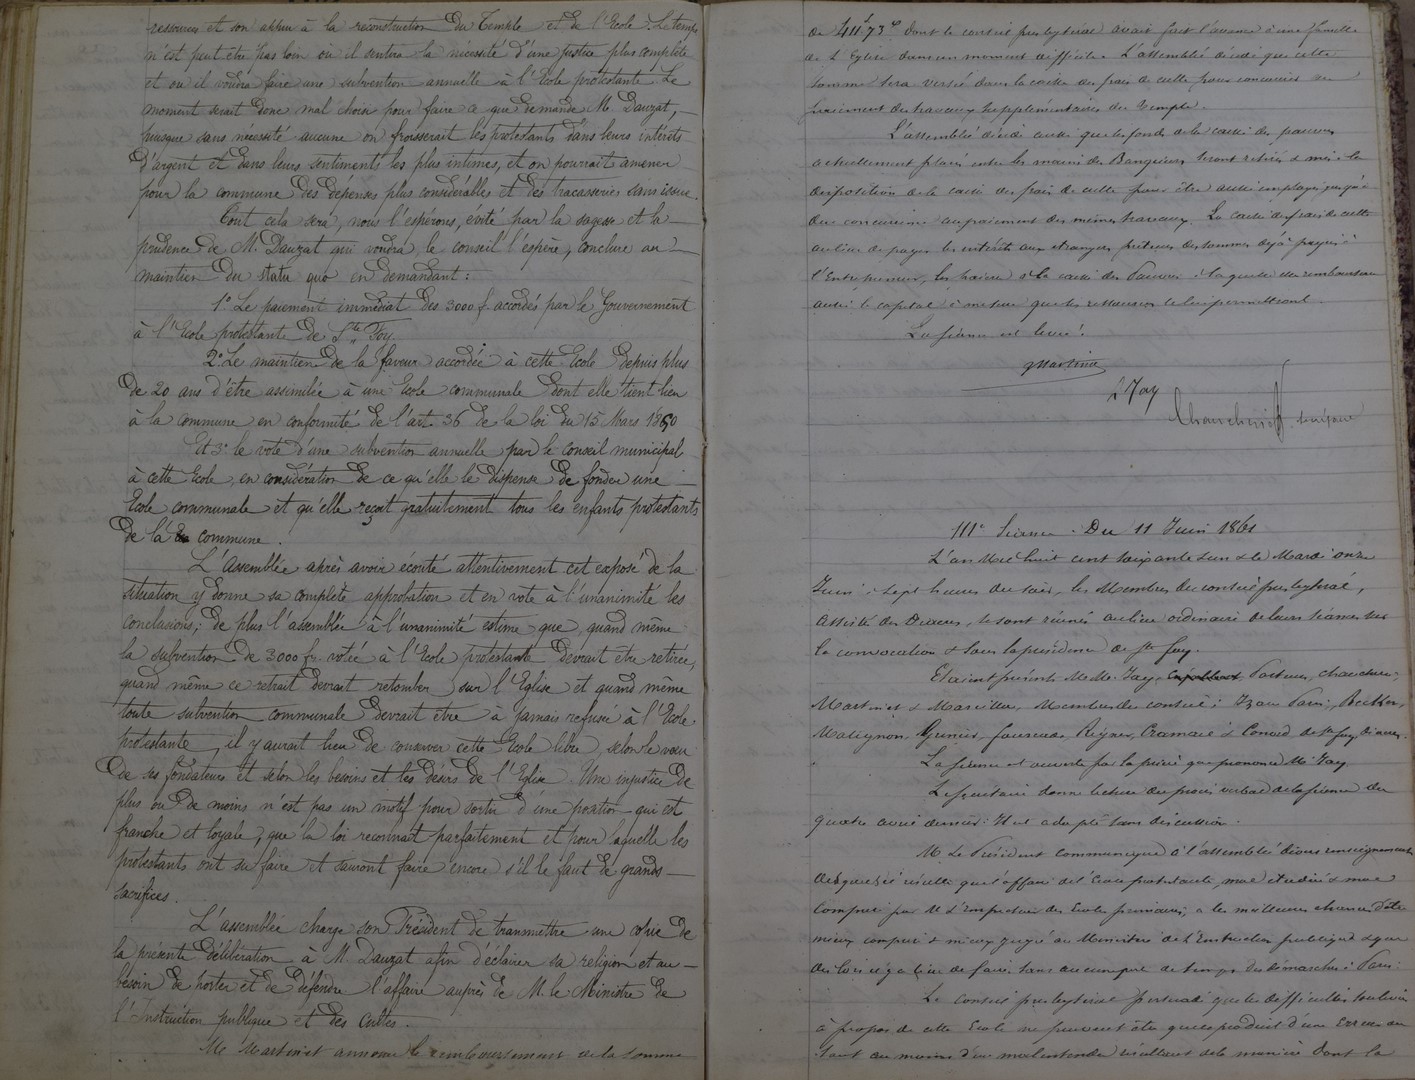 ressources et son appui à la reconstruction du Temple et de l'Ecole. Le temps
n'est peut être pas loin où il sentira la nécessité d'une justice plus complète
et où il voudra faire une subvention annuelle à l'Ecole protestante. Le
moment serait donc mal choisi pour faire ce que demande M. Dauzat,
puisque sans nécessité aucune on froisserait les protestants dans leurs intérêts
d'argent et dans leurs sentiments les plus intimes, et on pourrait amener
pour la commune des dépenses plus considérables et des tracasseries sans issue.
Tout cela sera, nous l'espérons, evité par la sagesse et la
prudence de M. Dauzat qui voudra, le conseil l'espère, conclure au
maintien du statu quo en demandant:
1º Le paiement immédiat des 3000 f. accordés par le Gouvernement
à l'Ecole protestante de Ste Foy.
2º Le maintien de la faveur accordée à cette Ecole depuis plus
de 20 ans d'être assimilée à une Ecole communale dont elle tient lieu
à la commune en conformité de l'art. 36 de la loi du 15 Mars 1850
Et 3º le vote d'une subvention annuelle par le conseil municipal
à cette Ecole, en considération de ce qu'elle le dispense de fonder une
Ecole communale et qu'elle reçoit gratuitement tous les enfants protestants
de la commune.
L'Assemblée après avoir écouté attentivement cet exposé de la
situation y donne sa complète approbation et en vote à l'unanimité les
conclusions; de plus l'assemblée à l'unanimité estime que, quand même
la subvention de 3000 fr. votée à l'Ecole protestante devrait être retirée,
quand même ce retrait devrait retomber sur l'Eglise et quand même
toute subvention communale devrait être à jamais refusée à l'Ecole
protestante, il y aurait lieu de conserver cette Ecole libre, selon le vœu
de ses fondateurs et selon les besoins et les désirs de l'Eglise. Une injustice de
plus ou de moins n'est pas un motif pour sortir d'une position qui est
franche et loyale, que la loi reconnait parfaitement et pour laquelle les
protestants ont su faire et sauront faire encore s'il le faut de grands
sacrifices.
L'assemblée charge son Président de transmettre une copie de
la présente délibération à M. Dauzat afin d'éclairer sa religion et au
besoin de porter et de défendre l'affaire auprès de M. le Ministre de
l'Instruction publique et des Cultes.
M. Martinet annonce le remboursement de la somme
de 411f 73c dont le conseil presbytéral avait fait l'avance à une famille
de l'Eglise dans un moment difficile. L'assemblée décide que cette
somme sera versée dans la caisse des frais de culte pour concourir au
paiement des travaux supplémentaires du Temple.
L'assemblée décide aussi que les fonds de la caisse des pauvres
actuellement placés entre les mains des Banquiers seront retirés & mis à la
disposition de la caisse des frais de culte pour être aussi employés
au paiement des mêmes travaux. La caisse des frais de culte
au lieu de payer les intérêts aux étrangers prêteurs des sommes déjà payées à
l'Entrepreneur, les paiera à la caisse des Pauvres à laquelle elle remboursera
aussi le capital à mesure que les ressources le lui permettront.
La séance est levée.
Martinet
L Jay
secrétaire
IIIe Séance. Du 11 Juin 1861
L'an Mil huit cent soixante un & le Mardi onze
Juin à sept heures du soir, les Membres du conseil presbytéral,
assisté des Diacres, se sont réunis au lieu ordinaire de leurs séances sur
la convocation & sous la présidence de M. Jay.
Etaient présents MM. Jay, Pasteur,
Martinet & Membres du conseil;
Matignon, Grenier, & de Ste Foy, Diacres.
La séance est ouverte par la prière que prononce M. Jay.
Le secrétaire donne lecture du procès verbal de la séance du
quatre avril dernier: il est adopté sans discussion.
M. Le Président communique à l'assemblée divers renseignements
desquels il résulte que l'affaire de l'Ecole protestante, mal étudiée & mal
comprise par M. l'Inspecteur des Ecoles primaires, a les meilleures chances d'être
mieux comprise & mieux jugée au Ministère de l'Instruction publique &
Le Conseil presbytéral persuadé que les difficultés soulevées
à propos de cette Ecole ne peuvent être que le produit d'une Erreur ou
tout au moins d'un malentendu résultant de la manière dont la